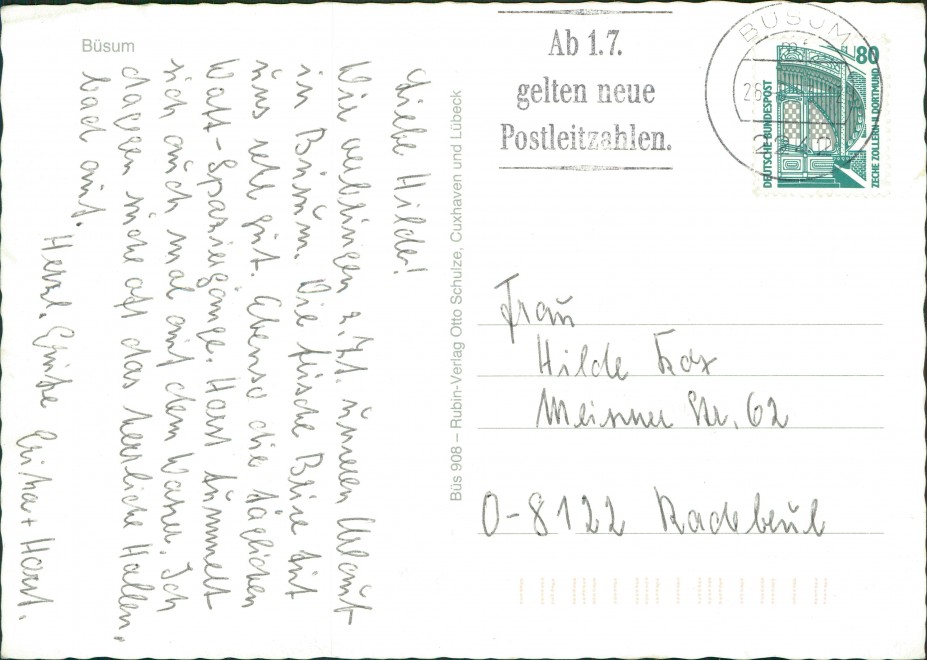 Büsum
Liebe Hilde!
Wir verbringen z. Zt. unseren Urlaub
in Büsum. Die frische Brise tut
uns sehr gut. Ebenso die täglichen
Watt-Spaziergänge. Horst tummelt
sich auch mal auf dem Wasser. Ich
dagegen suche oft das herrliche Hallen-
bad auf.
Herzl. Grüße Erika + Horst.
Büs 908 – Rubin-Verlag Otto Schulze, Cuxhaven und Lübeck
Ab 1.7.
gelten neue
Postleitzahlen.
BÜSUM
80
DEUTSCHE BUNDESPOST
ZECHE ZOLLERN II DORTMUND
Frau
Hilde
Meissner Str. 62
O-8122 Radebeul